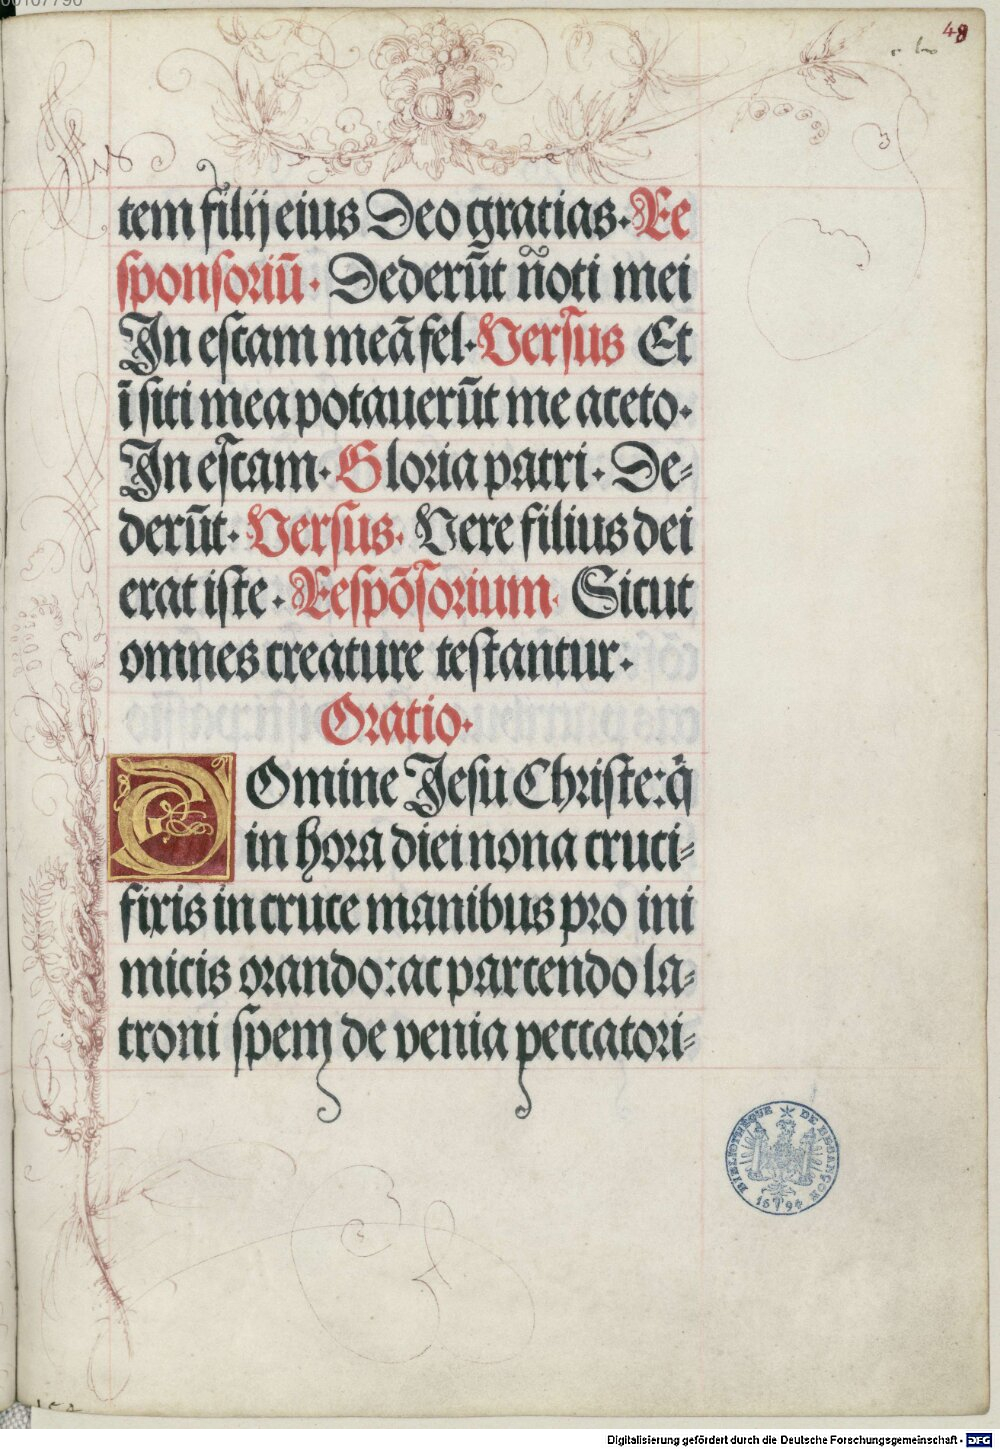 48
tem filij eius Deo gratias. Re
sponsoriū. Dederūt ñoti mei
In escam meā fel. Versus Et
ī siti mea potauerūt me aceto.
In escam. Gloria patri. De-
derūt. Versus. Vere filius dei
erat iste. Respōsorium. Sicut
omnes creature testantur.
Oratio.
Domine Jesu Christe: q̄
in hora diei nona cruci-
fixis in cruce manibus pro ini
micis orando: ac parcendo la-
troni spem de venia peccatori-
BIBLIOTHÈQUE DE BESANÇON
1694
Digitalisierung gefördert durch die Deutsche Forschungsgemeinschaft - DFG